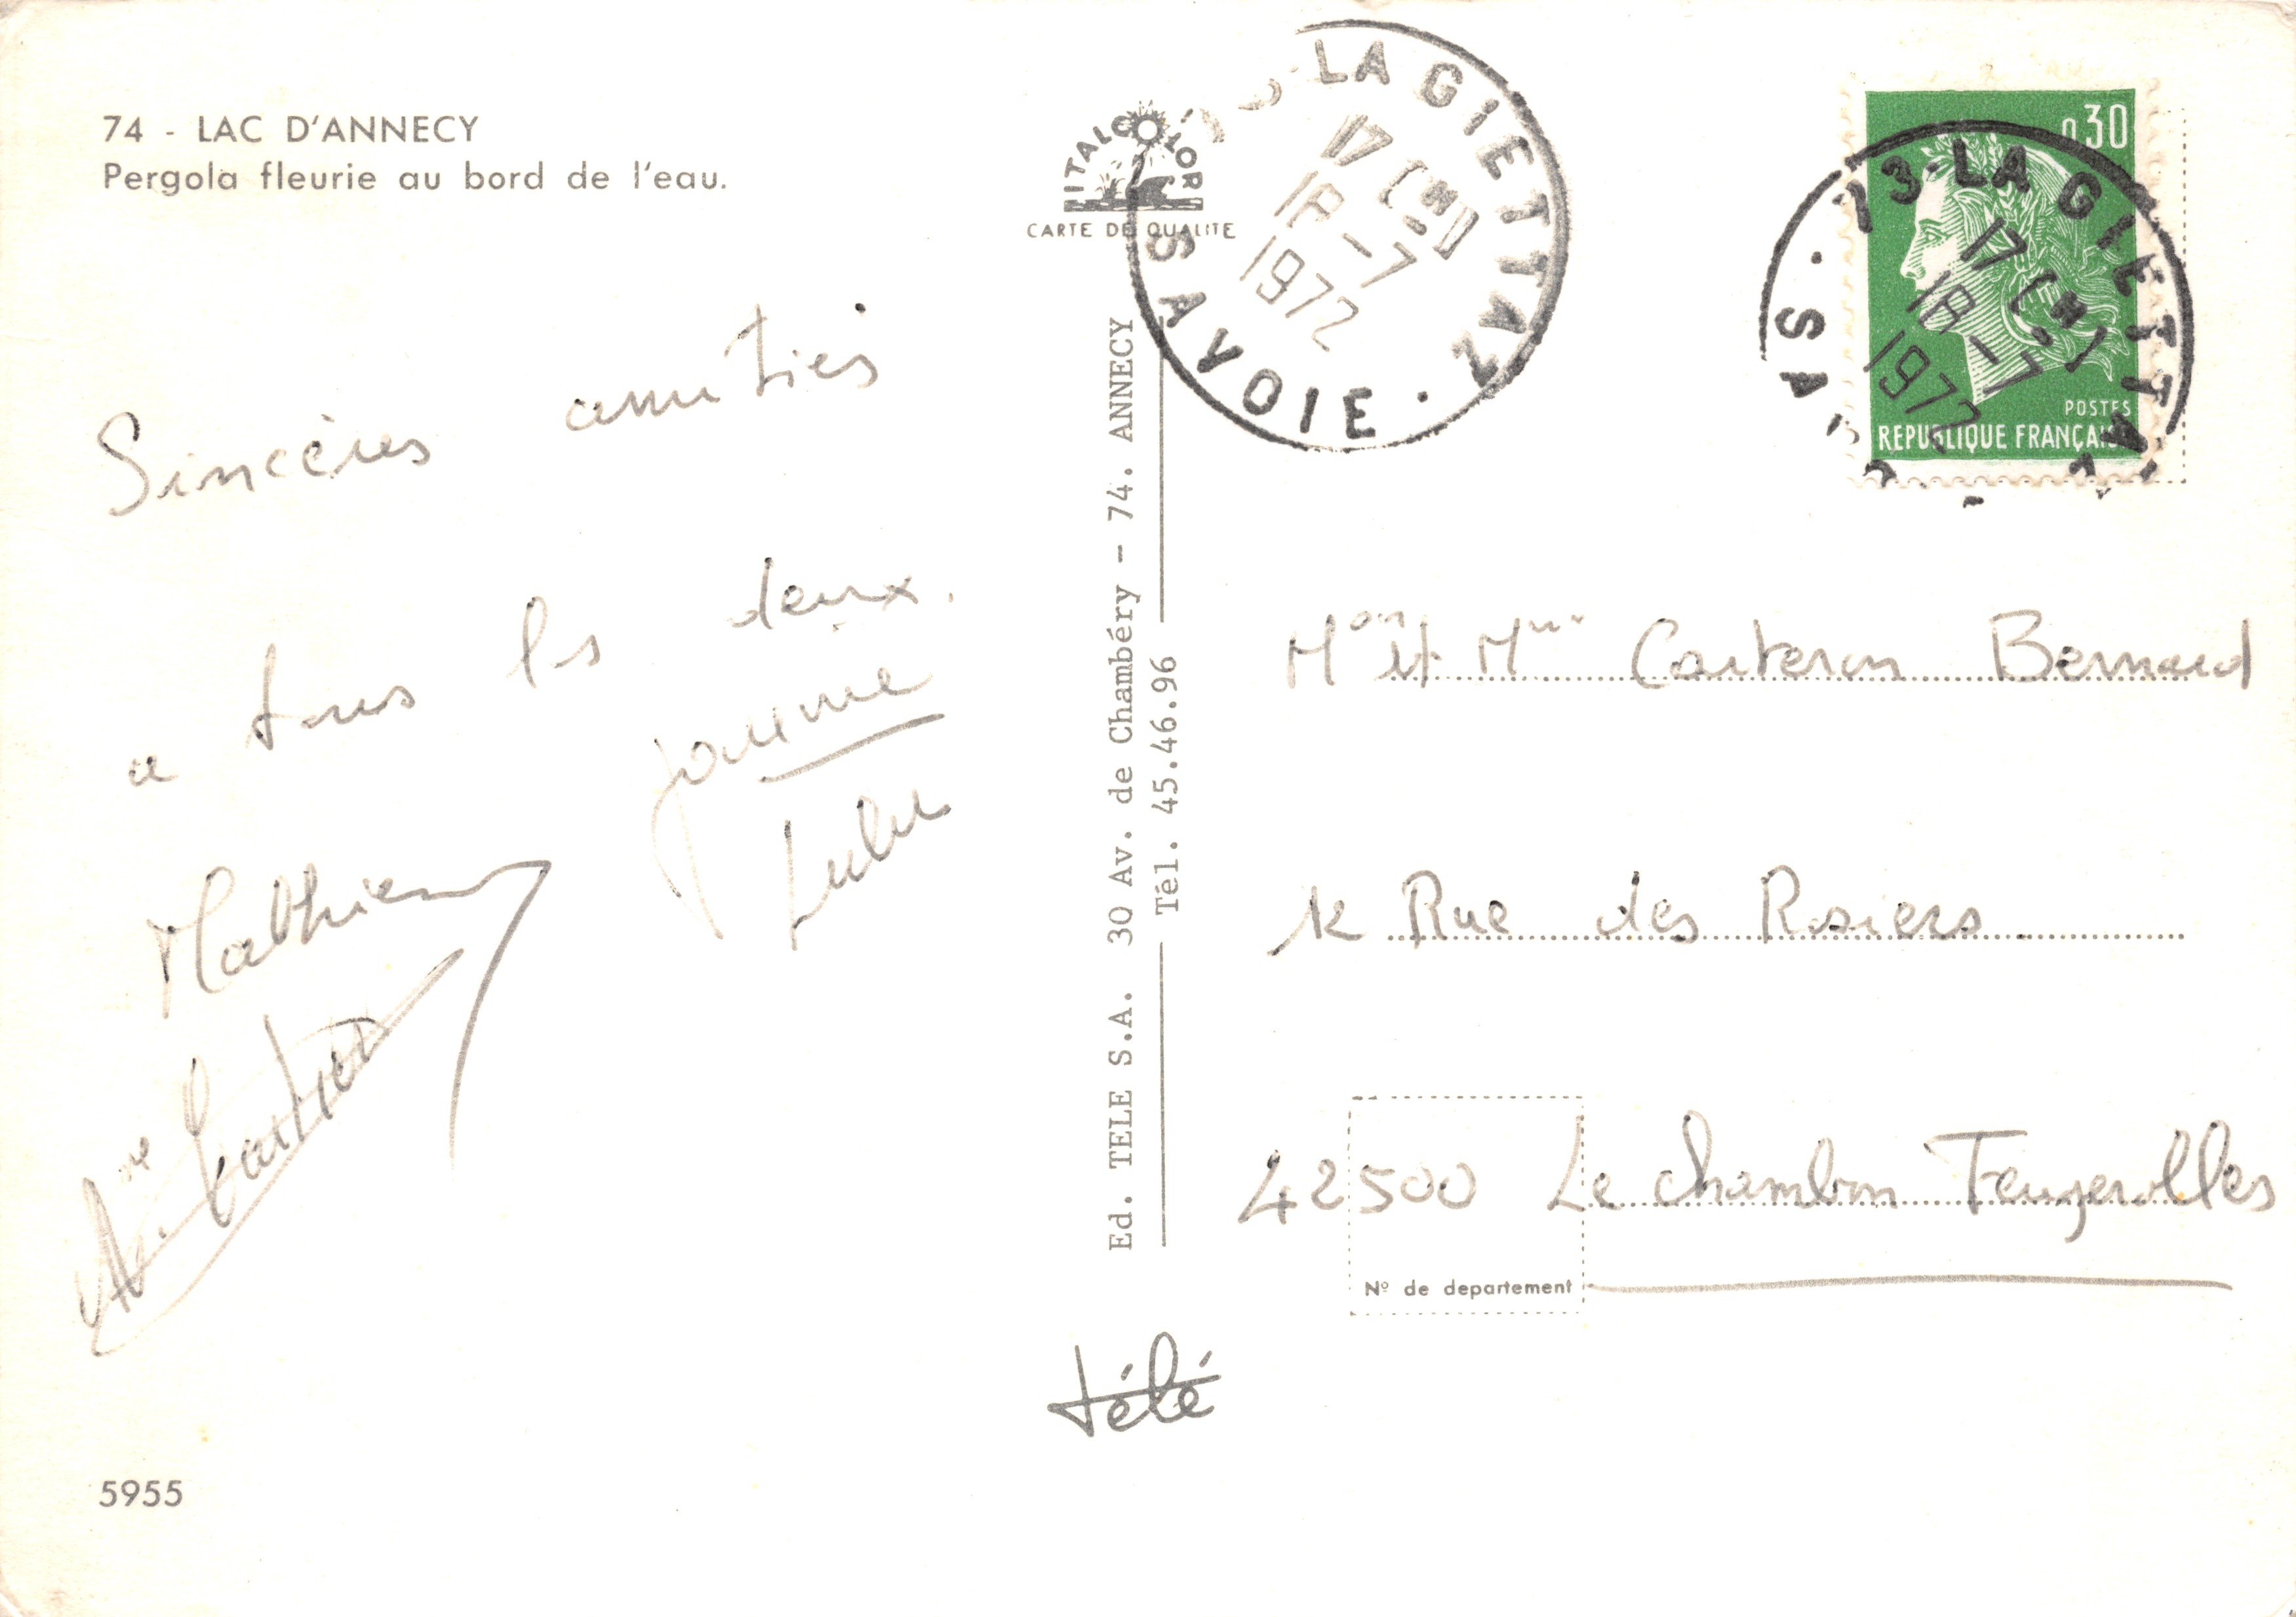 74 - LAC D'ANNECY
Pergola fleurie au bord de l'eau.
Sincères amitiés
a tous les deux.
Jeanne
Lulu
Mathieu
5955
ITALCOLOR
CARTE DE QUALITE
Ed. TELE S.A. 30 Av. de Chambéry - 74. ANNECY
Tél. 45.46.96
télé
LA GIETTAZ
17 H
18 -7
1972
SAVOIE
0,30
POSTES
REPUBLIQUE FRANÇAISE
73 LA GIETTAZ
17 H
18 -7
1972
SA
Mon et Mme Carteron Bernard
Rue des Rosiers
42500 Le chambon Feugerolles
Nº de departement